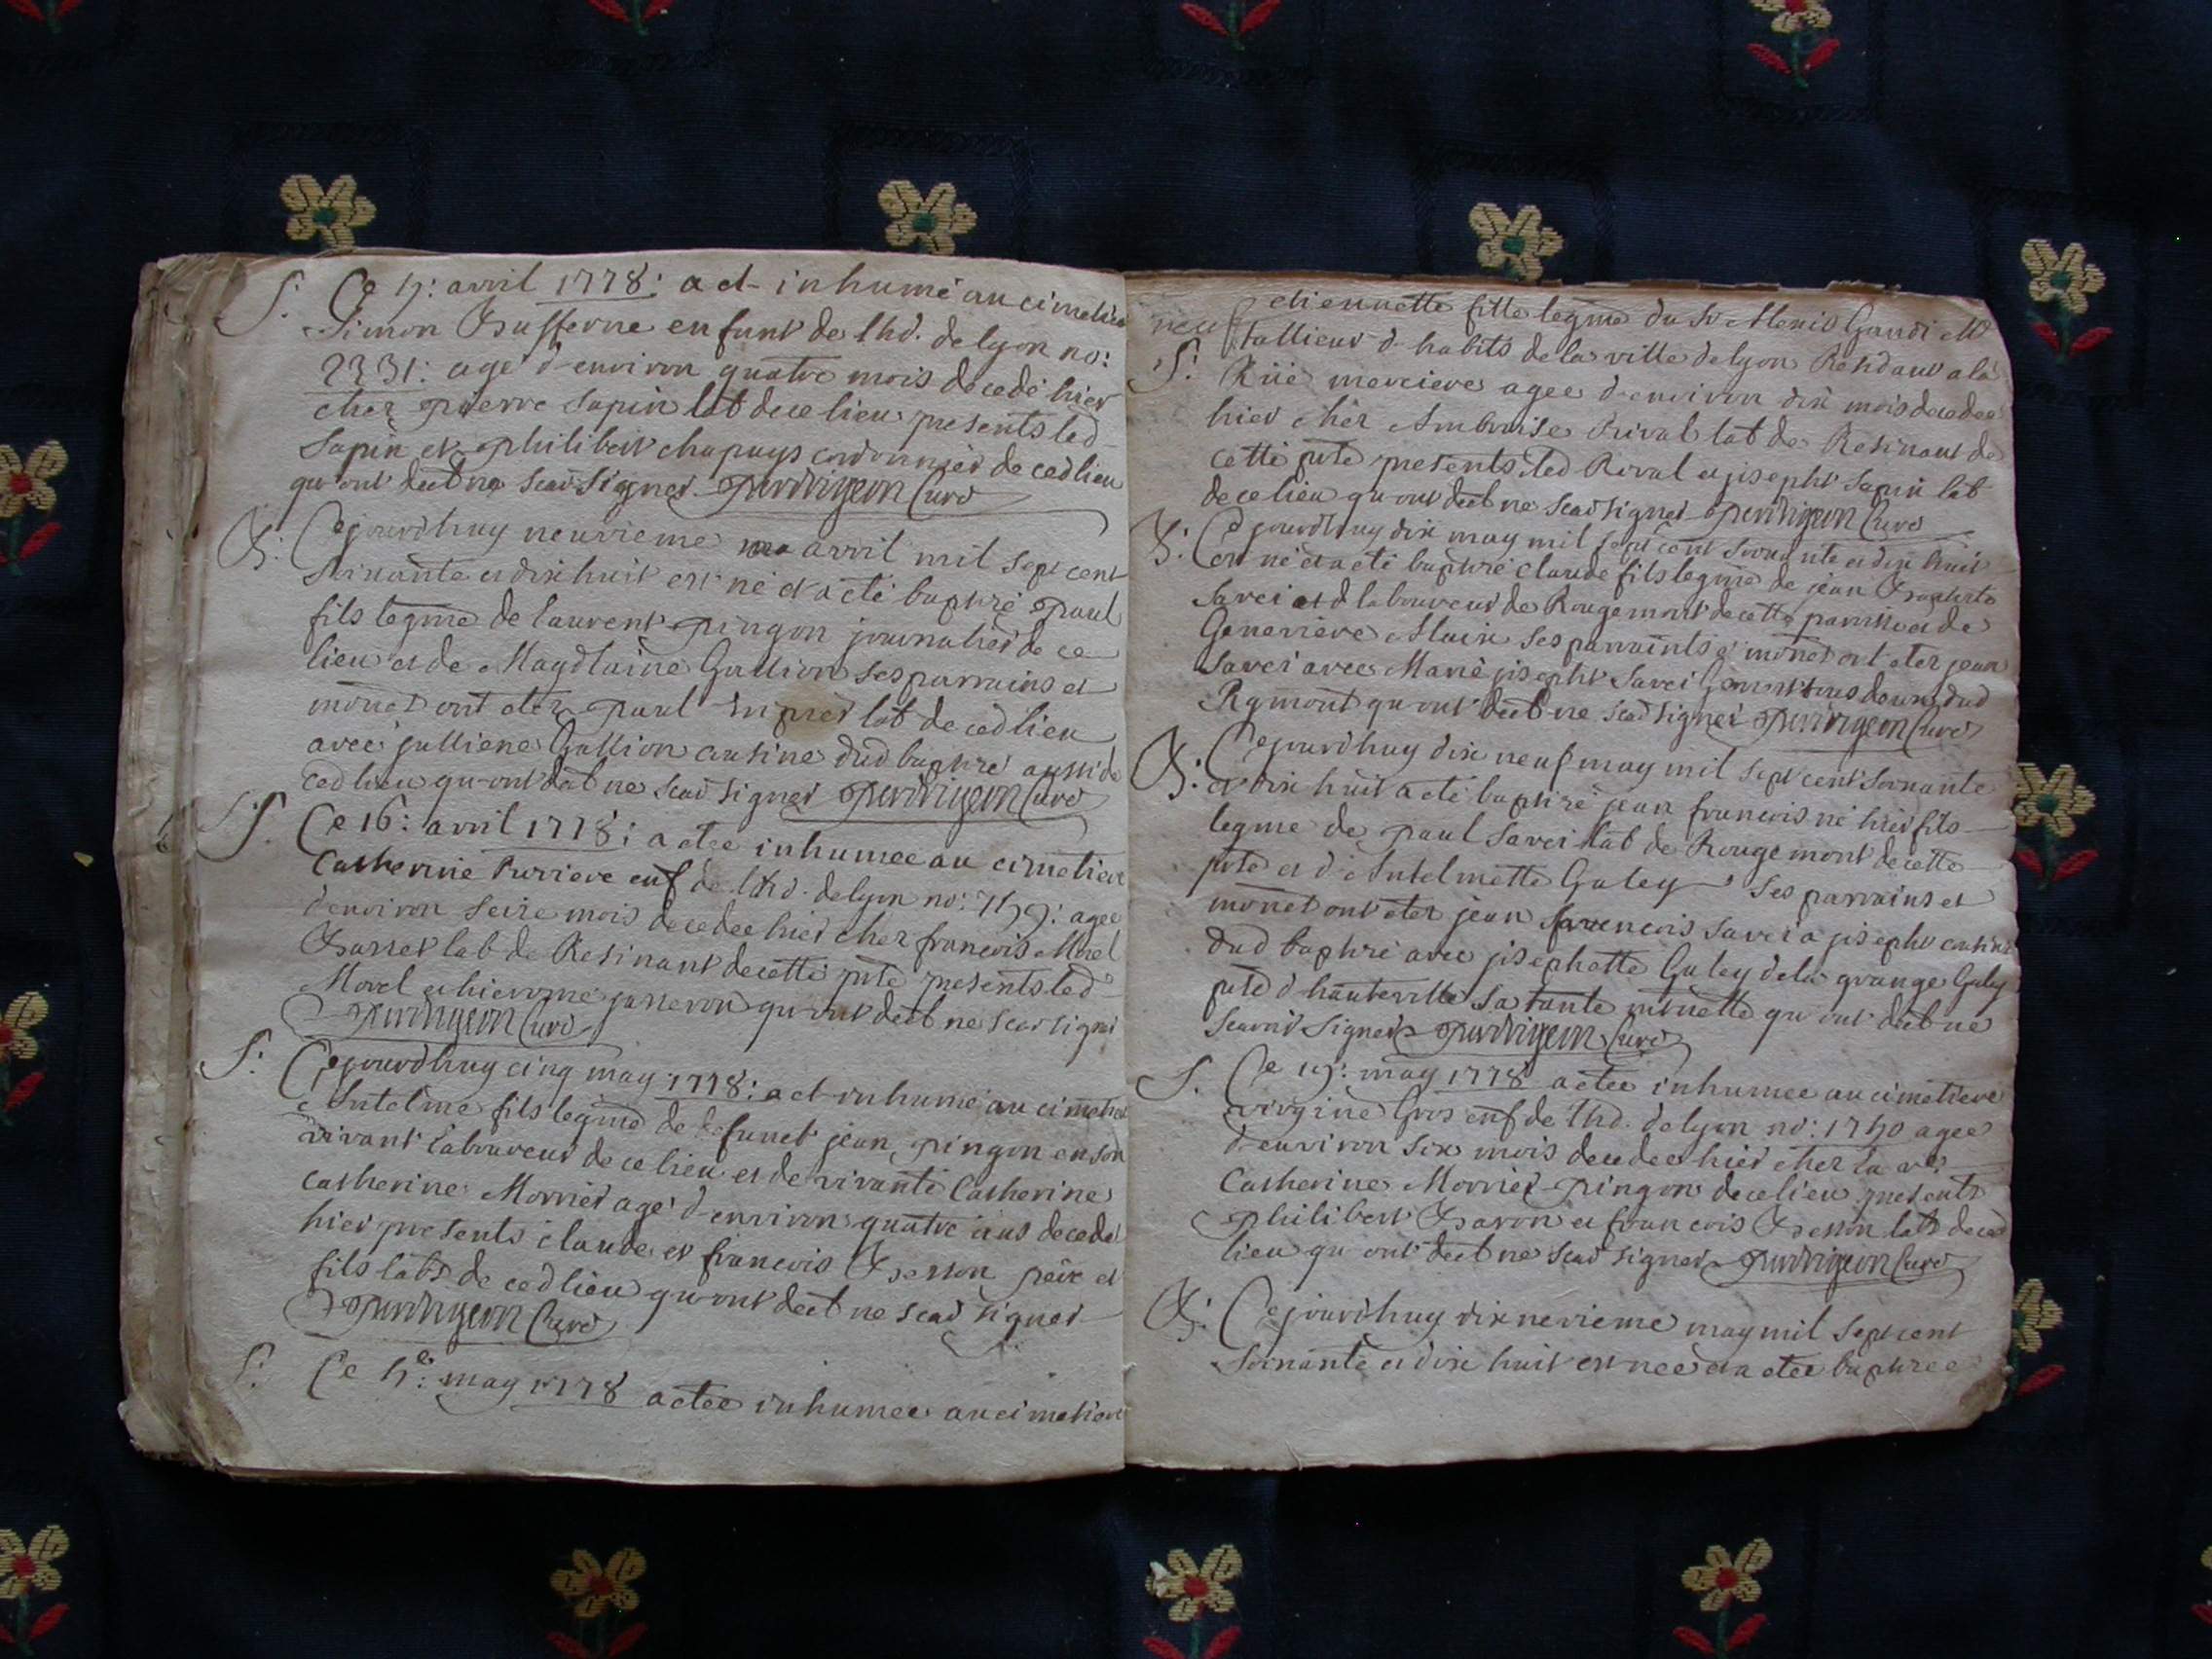 S: Ce 5: avril 1778: a et inhumé au cimetiere
Simon enfant de lhd. de lyon no:
2231: agé d environ quatre mois decedé hier
chez pierre Sapin lab de ce lieu presents led
Sapin et philibert chapuys cordonnier de ced lieu
qu ont decl ne scav signer Perdrigeon Curé
B: Cejourdhuy neuvieme avril mil sept cent
soixante et dix huit est né et a eté baptizé paul
fils legme de laurent pingon journalier de ce
lieu et de Magdlaine Gallion ses parrains et
ont etez paul lab de ced lieu
avec julliene Gallion cousine dud baptizé aussi de
ced lieu qu ont decl ne scav signer Perdrigeon Curé
S. Ce 16: avril 1778: a etee inhumee au cimetiere
Catherine enf de lhd. de lyon no: agee
d environ seize mois decedee hier chez francois Morel
lab de Resinant de cette pste presents led
Morel et hierome qu ont decl ne scav signer
Perdrigeon Curé
S: Cejourdhuy cinq may 1778: a et inhumé au cimetiere
Antelme fils legme de defunct jean pingon en son
vivant laboureur de ce lieu et de vivante Catherine
Morrier agé d environ quatre ans decedé
hier presents claude et francois Besson pere et
fils labs de ced lieu qu ont decl ne scav signer
Perdrigeon Curé
S: Ce may 1778 a etee inhumee au cimetiere
etiennette fille legme du Sr Gaudi Me
tallieur d habits de la ville de lyon Residant a la
S: Rüe merciere agee d environ dix mois decedee
hier chéz Ambroise Rival lab de Resinant de
cette pste presents led Rival et joseph Sapin lab
de ce lieu qu ont decl ne scav signer Perdrigeon Curé
B: Cejourdhuy dix may mil sept cent soixante et dix huit
est né et a eté baptizé claude fils legme de jean
Savei laboureur de Rougemont de cette parroisse et de
Genevieve ses parraints et ont etez jean
Savei avec Marie joseph Savei tous deux dud
Rgmont qu ont decl ne scav signer Perdrigeon Curé
B: Cejourdhuy dix neuf may mil sept cent soixante
et dix huit a eté baptizé jean francois né hier fils
legme de paul Savei lab de Rougemont de cette
pste et d Antelmette Guley ses parrains et
ont etez jean francois Savei a joseph cousin
dud baptizé avec josephette Guley de la grange Guley
pste d hauteville sa tante qu ont decl ne
scavoir signer Perdrigeon Curé
S. Ce 19: may 1778 a etee inhumee au cimetiere
virgine Gros enf de lhd. de lyon no: 1750 agee
d environ six mois decedee hier chez la ve
Catherine Morrier pingon de ce lieu presents
philibert Baron et francois Besson labs de ced
lieu qu ont decl ne scav signer Perdrigeon Curé
B: Cejourdhuy dix nevieme may mil sept cent
soixante et dix huit est nee et a etee baptizee